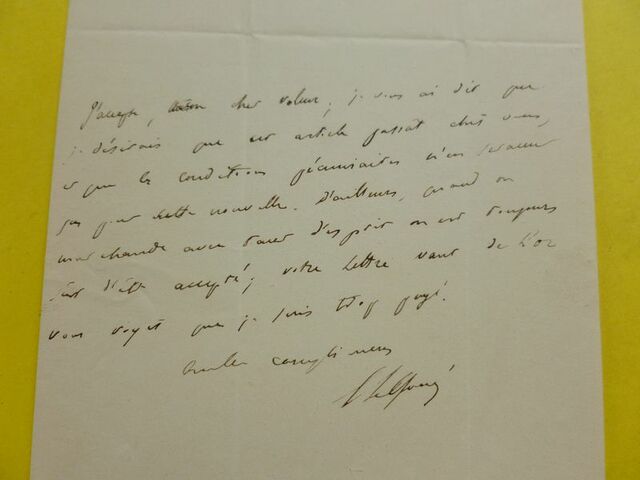 J'accepte, mon cher voleur; je vous ai dit que
je désirais que cet article passât chez vous,
et que les conditions pécuniaires n'en seraient
pas pour cette nouvelle. D'ailleurs, quand on
marchande avec tant d'esprit on est toujours
sûr d'être accepté; votre lettre vaut de l'or
vous voyez que je suis trop payé.
compliments